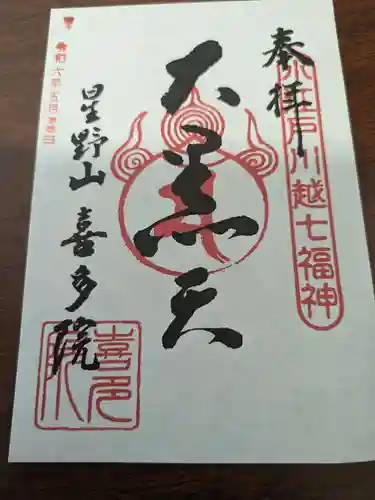 奉拝
小江戸川越七福神
大黒天
星野山 喜多院
令和六年五月
喜多院